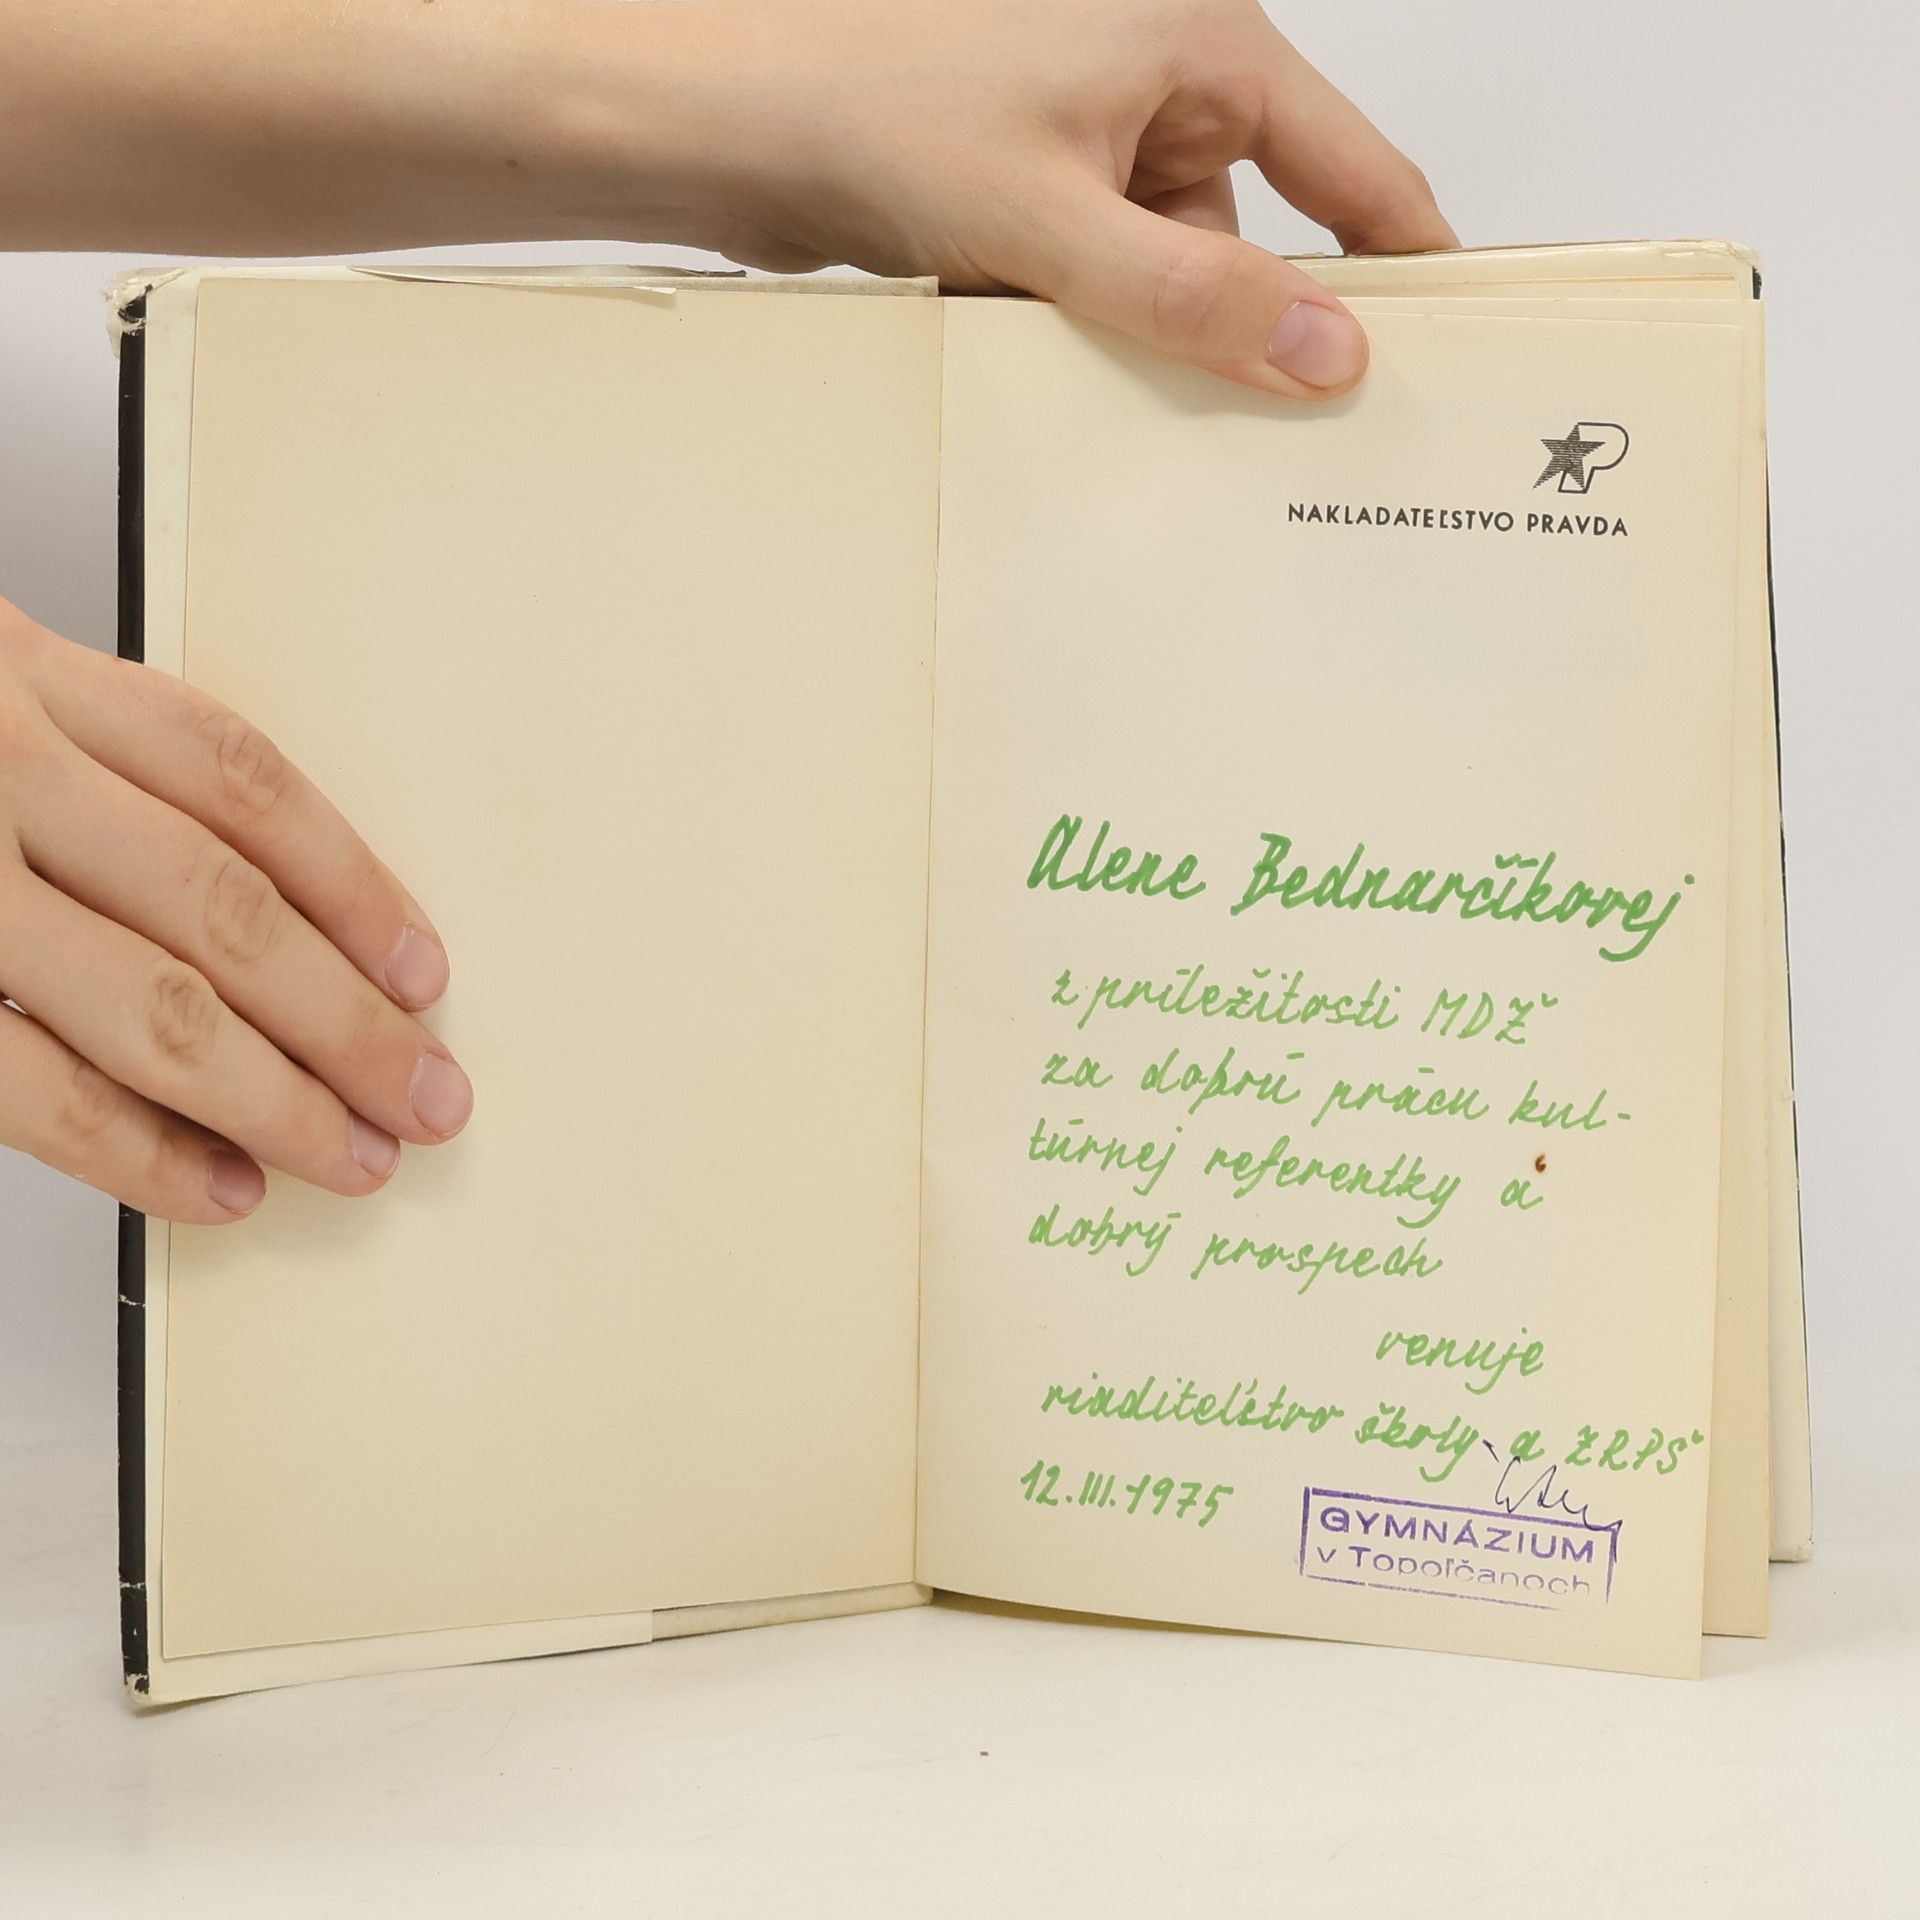 P
NAKLADATEĽSTVO PRAVDA
Alene Bednarčíkovej
z príležitosti MDŽ
za dobrú prácu kul-
túrnej referentky a
dobrý prospech
venuje
riaditeľstvo školy a ZRPŠ
12.III.1975
GYMNÁZIUM
v Topoľčanoch